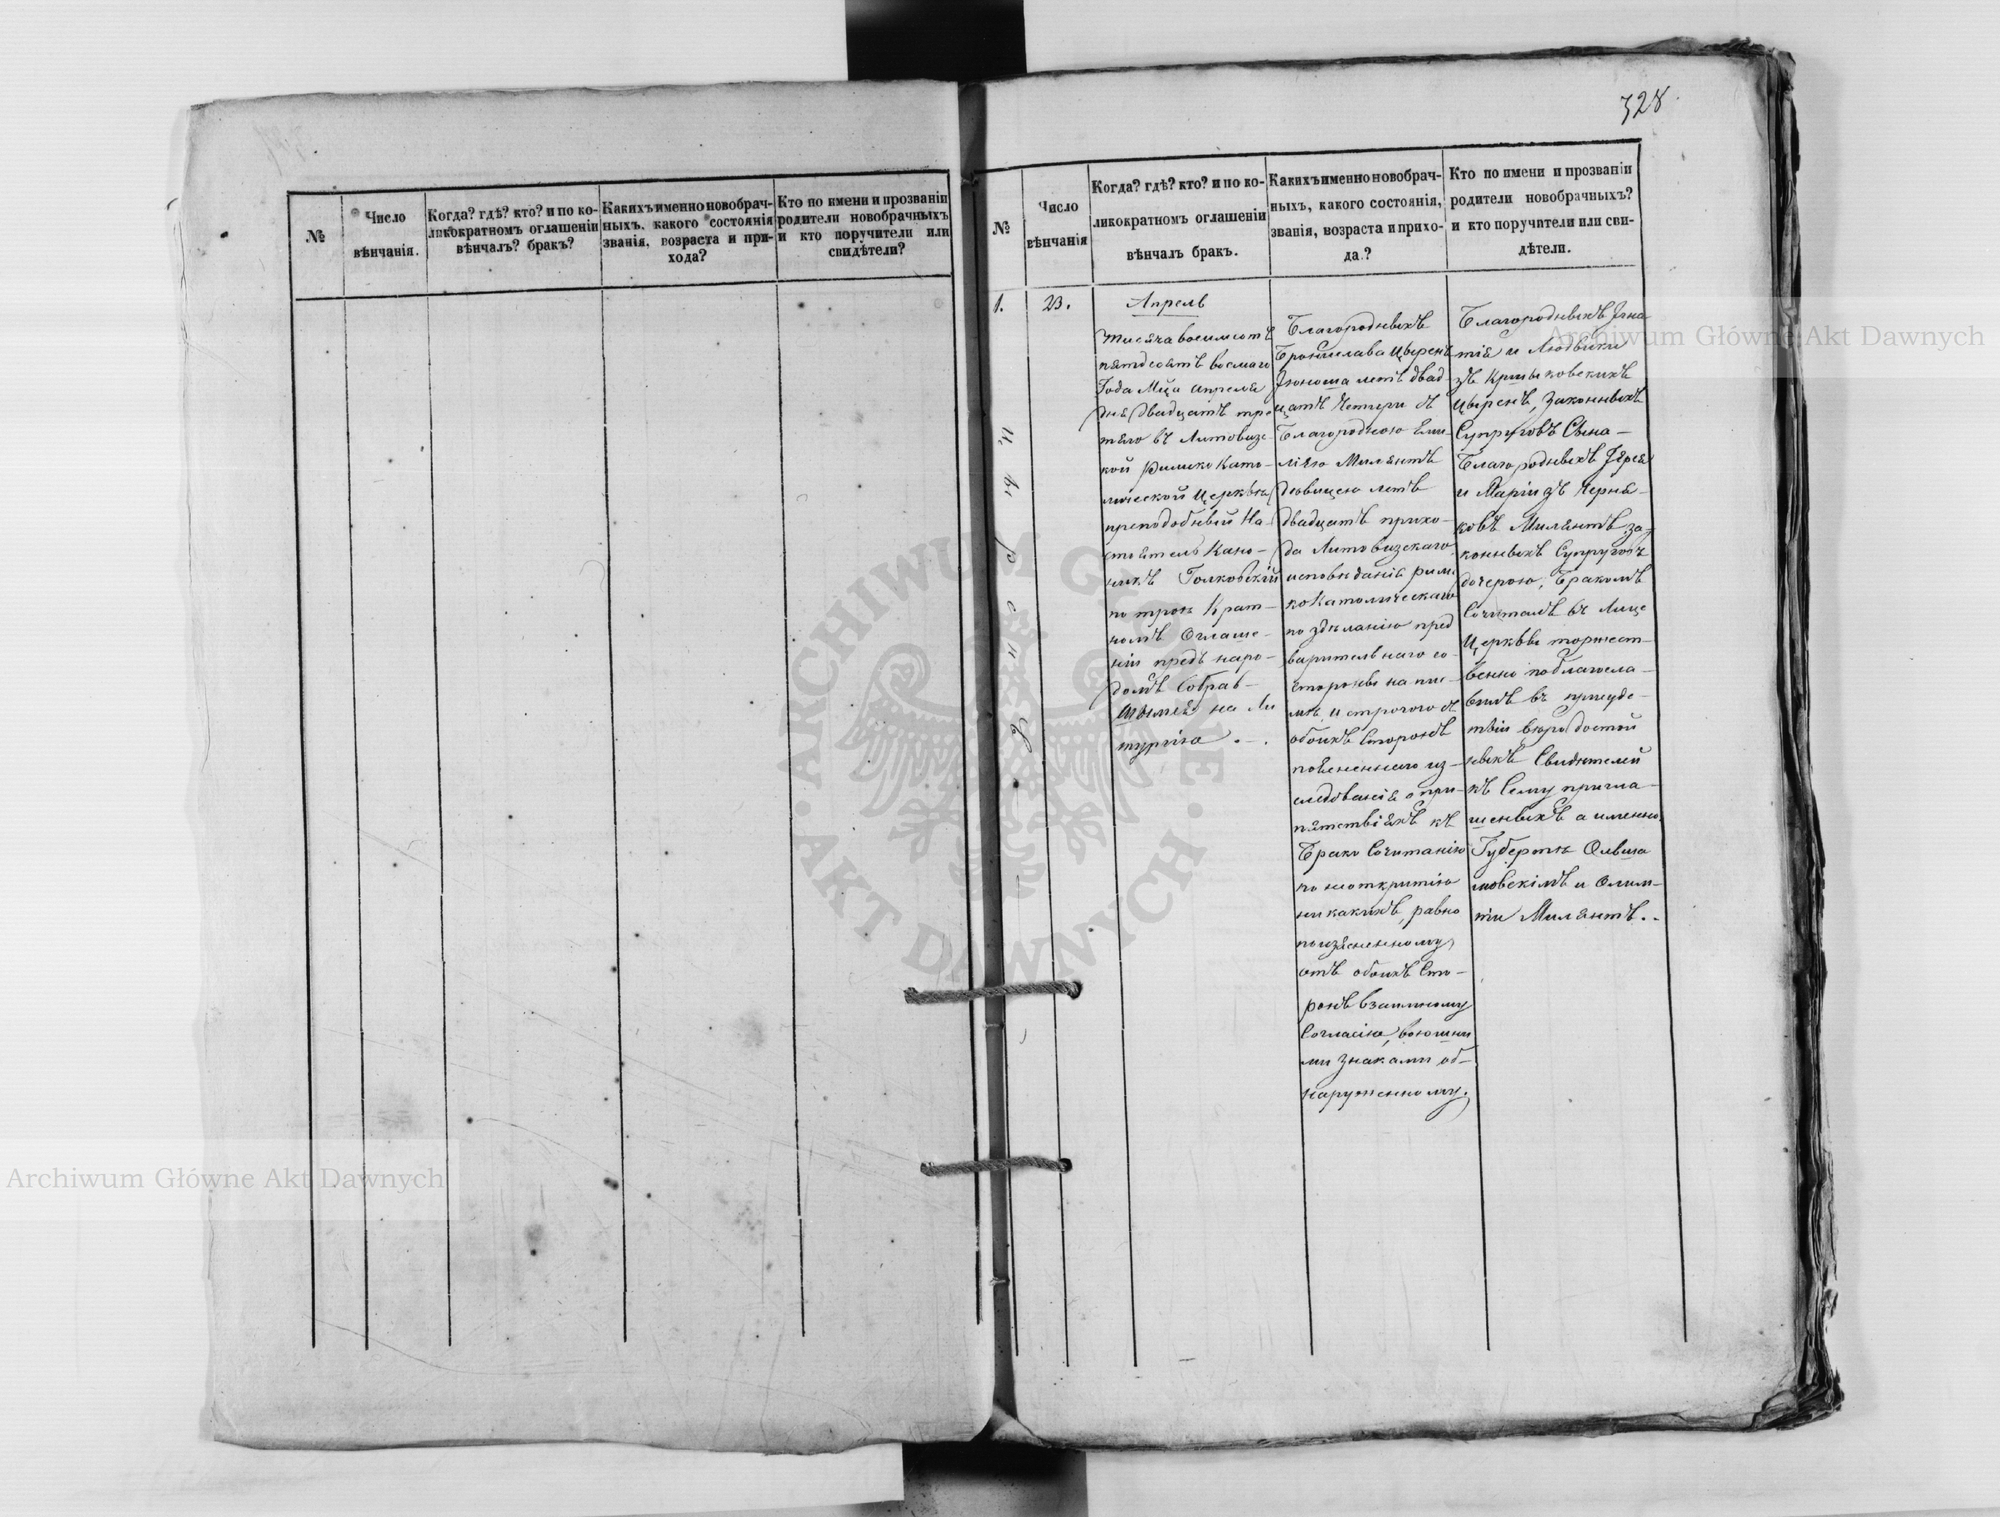 328
№
Число
вѣнчанія.
Когда? гдѣ? кто? и по ко-
ликократномъ оглашеніи
вѣнчалъ? бракъ?
Какихъ именно новобрач-
ныхъ, какого состоянія
званія, возраста и при-
хода?
Кто по имени и прозваніи
родители новобрачныхъ
и кто поручители или
свидѣтели?
№
Число
вѣнчанія
Когда? гдѣ? кто? и по ко-
ликократномъ оглашеніи
вѣнчалъ бракъ.
Какихъ именно новобрач-
ныхъ, какого состоянія,
званія, возраста и прихо-
да?
Кто по имени и прозваніи
родители новобрачныхъ?
и кто поручители или сви-
дѣтели.
1.
23.
Апрель
тисяча восимсотъ
пятдесятъ восмаго
Года Мца Апреля
дня двадцатъ тре-
тяго въ Литовиж-
кой Римско Като-
лической Церквѣ
преподобный На-
стоятель Кано-
никъ Голковскій
по трое Крат-
номъ Оглаше-
ніи предъ наро-
домъ Собрав-
шымся на Ли
тургію . - .
Благородныхъ
Бронислава Цыренъ
Юноша летъ двад-
цатъ Четыри съ
Благородною Еми-
ліею Милянтъ
Девицею летъ
двадцатъ прихо-
да Литовизскаго
исповѣданія рим-
ко Католическаго
по зделанію пред
варительнаго со
стороны на пис-
мѣ, и строгого съ
обоихъ Сторонъ
поясненнаго из-
следованія о при-
пятствіяхъ къ
Брако Сочитанію
по неоткритію
никакихъ, равно
поизясненному
отъ обоихъ Сто-
ронъ взаимному
Согласію,
ми знаками об-
наруженному.
Благородныхъ Игна-
тія и Людвики
зъ Крыжковскихъ
Цыренъ, Законныхъ
Супруговъ Сына -
Благородныхъ
и Маріи зъ Черня-
ковъ Милянтъ за-
конныхъ Супруговъ
дочерою, Бракомъ
Сочиталъ въ Лице
Церквы торжест-
венно поблагосла-
вилъ въ присуде-
твіи
ныхъ Свидѣтелей
къ Сему пригла-
шенныхъ а именно
Губерта Олиша
мовскимъ и Олим-
пи Милянтъ . .
ц
ы
р
е
н
ъ
Archiwum Główne Akt Dawnych
Archiwum Główne Akt Dawnych
ARCHIWUM GŁÓWNE AKT DAWNYCH